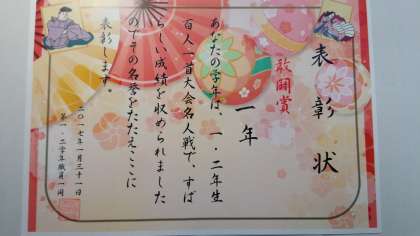 表彰状
敢闘賞
一年
あなたの学年は、一・二年生
百人一首大会名人戦で、すば
らしい成績を収められました
のでその名誉をたたえここに
表彰します。
二〇一七年一月三十一日
第一・二学年職員一同